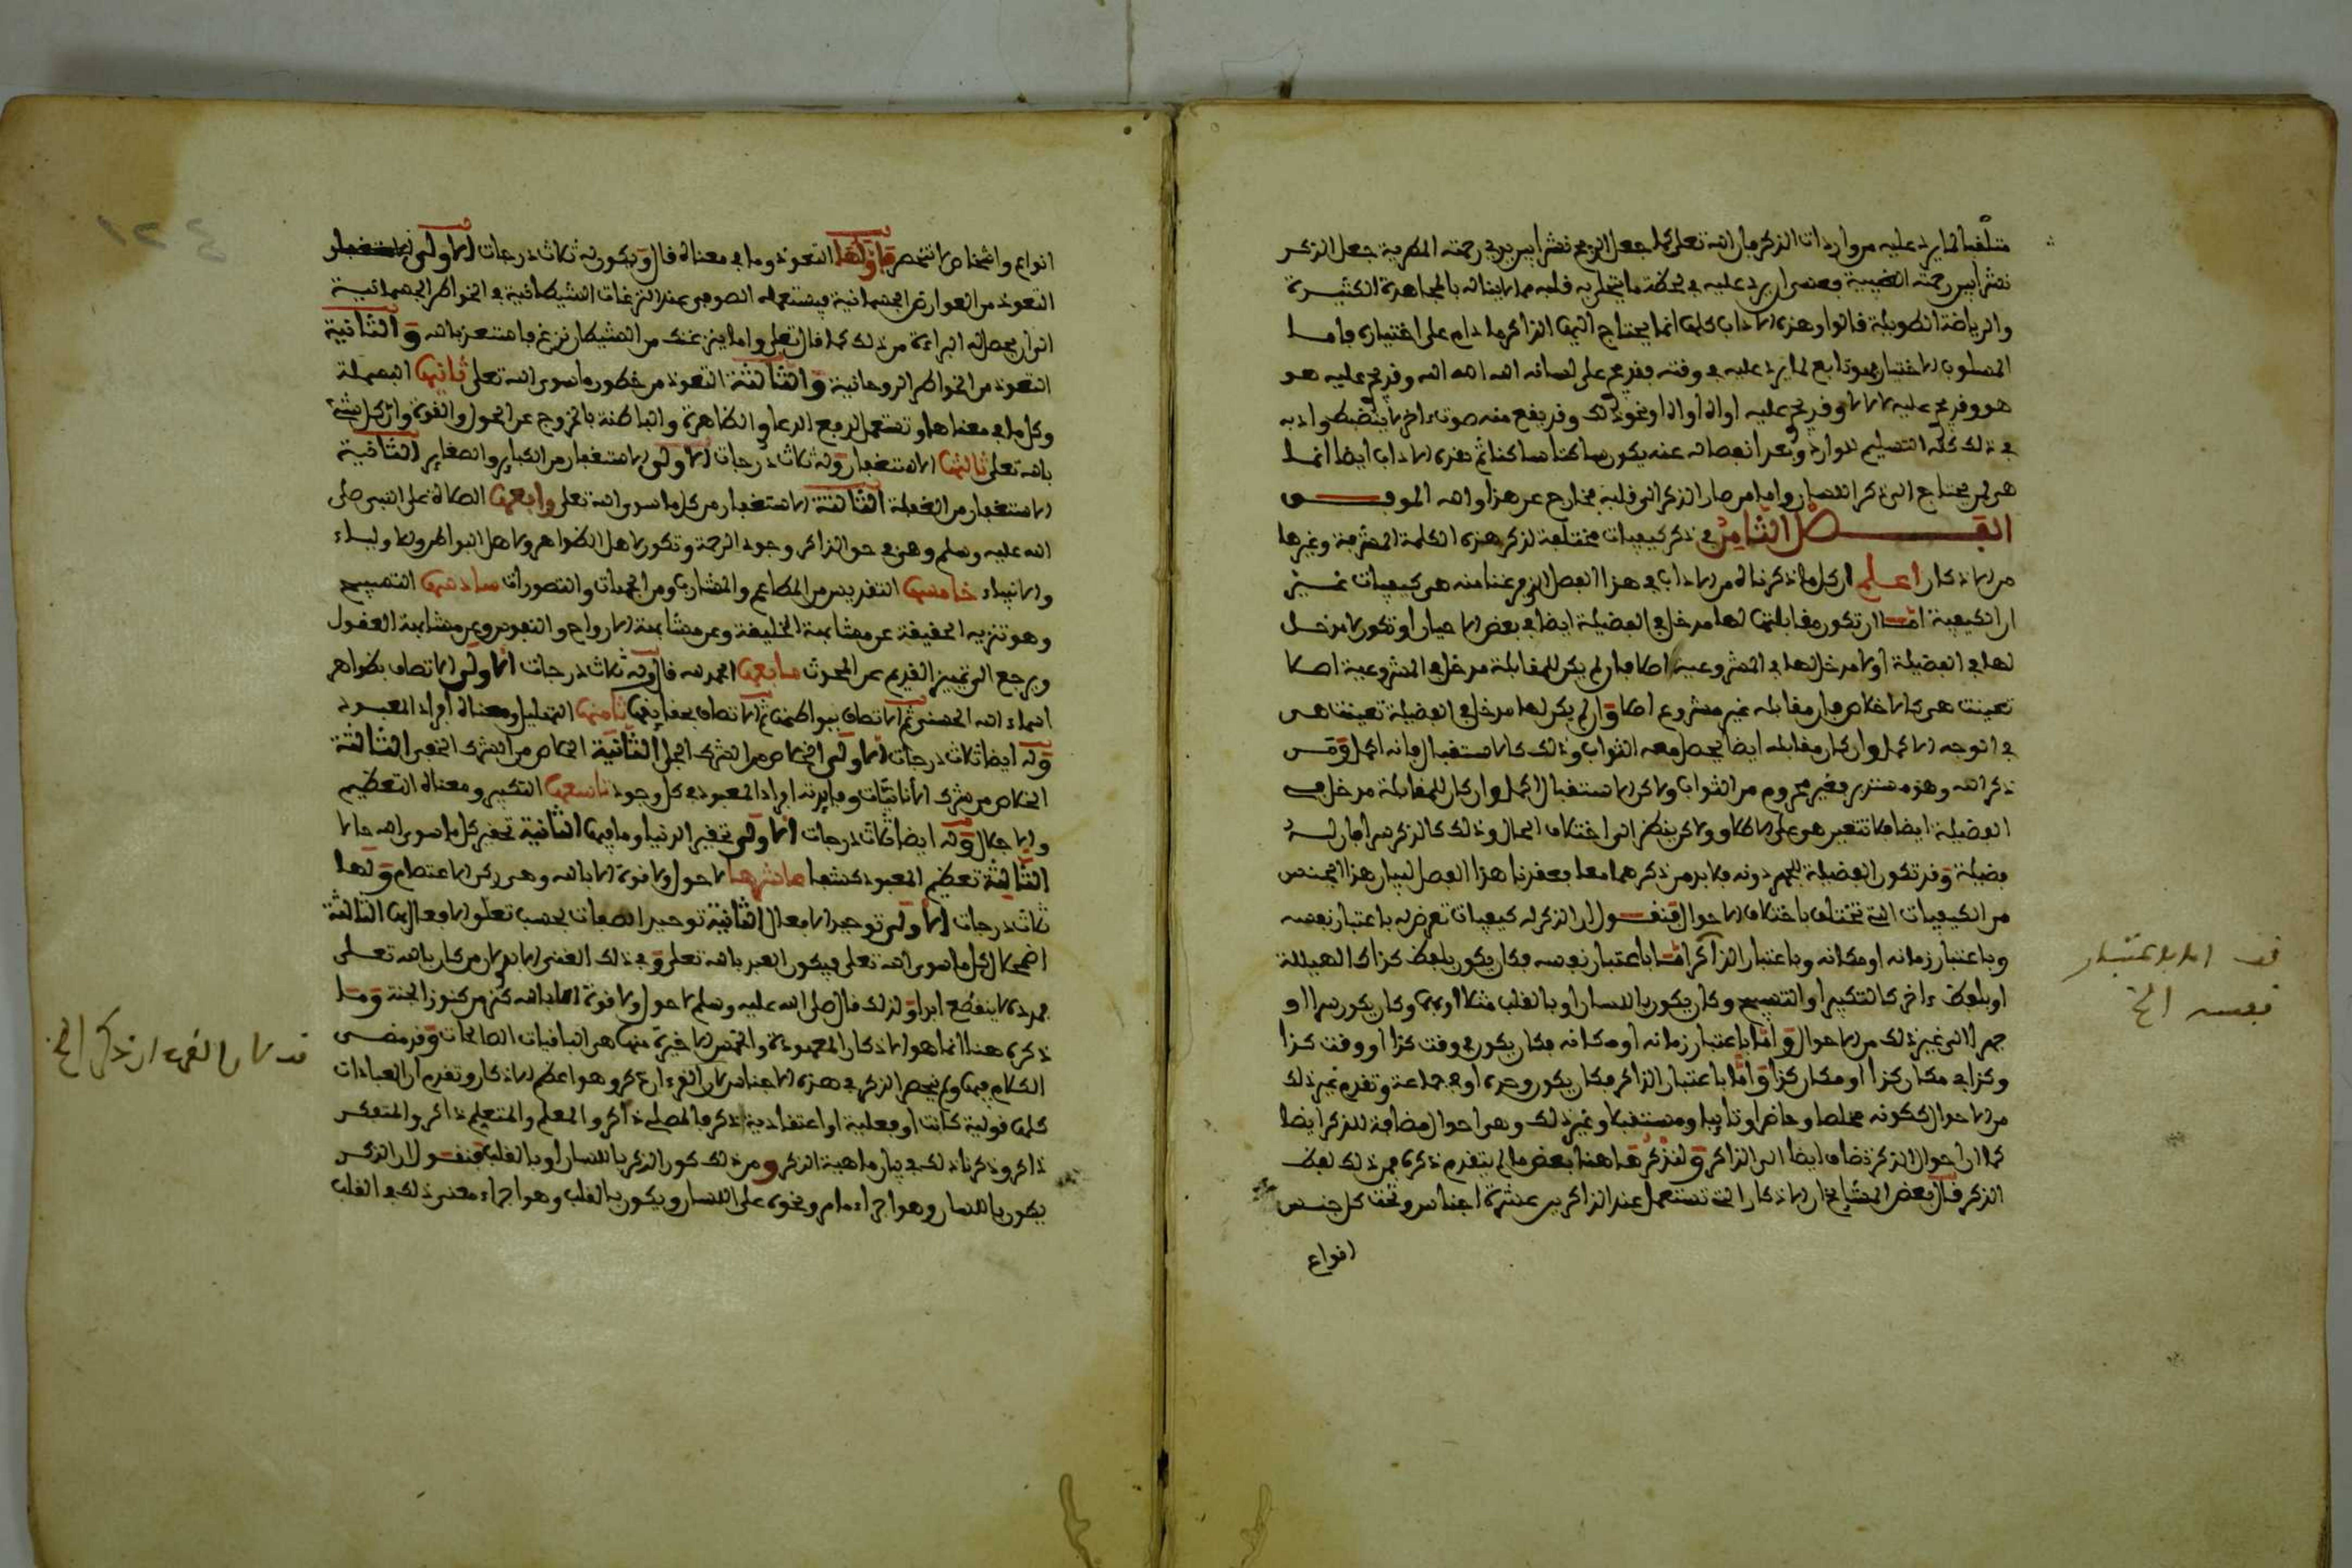 متلقيا لما يرد عليه من واردات الذكر فإن الله تعلى كما جعل الريح نشرا بين يدي رحمته المطرية جعل الذكر
نشرا بين رحمته الغيبية فعسى ان يرد عليه في لحظة ما يتحلى به قلبه مما لا يناله بالمجاهدة الكثيرة
والرياضة الطويلة قالوا وهذه الاداب كلها انما يحتاج اليها الذاكر ما دام على اختياره فاما
المسلوب الاختيار فهو تابع لما يرد عليه في وقته فقد يجري على لسانه الله الله الله وقد يجري عليه هو
هو وقد يجري عليه لا لا لا وقد يجري عليه اواه اواه او نحو ذلك وقد يقع منه صوت ءاخر لا ينضبط وادبه
في ذلك كله التسليم للوارد وبعد انفصاله عنه يكون ساكتا ساكنا ثم هذه الاداب ايضا انما
هي لمن يحتاج الى ذكر اللسان واما من صار الذكر الى قلبه فخارج عن هذا والله الموفــق
الفصل الثامن في ذكر كيفيات مختلفة لذكر هذه الكلمة المشرفة وغيرها
من الاذكار اعلم ان كل ما ذكرناه من الاداب في هذا الفصل الذي فرغنا منه هي كيفيات غير
ان الكيفية اما ان تكون مقابلتها لها مدخل في الفضيلة ايضا في بعض الاحيان او تكون لا مدخل
لها في الفضيلة او لا مدخل لها في المشروعية اصلا فان لم يكن للمقابلة مدخل في المشروعية اصلا
تعينت هي كالاخلاص فإن مقابله غير مشروع اصلا وان لم يكن لها مدخل في الفضيلة تعينت هي
في الوجه الاكمل وان كان مقابله ايضا يحصل معه الثواب وذلك كالاستقبال فإنه اكمل ومن
ذكر الله وهو مستدبر فغير محروم من الثواب ولاكن الاستقبال اكمل وان كان للمقابلة مدخل في
الفضيلة ايضا فلا تتعين هي على الاطلاق ولاكن ينظر الى اختلاف الحال وذلك كالذكر سرا فإن له
فضيلة وقد تكون الفضيلة للجهر دونه فلا بد من ذكرهما معا فعقدنا هذا الفصل لبيان هذا الجنس
من الكيفيات التي تختلف باختلاف الاحوال فنقــول ان الذكر له كيفيات تعرض له باعتبار نفسه
وباعتبار زمانه او مكانه وباعتبار الذاكر اما باعتبار نفسه فكأن يكون بلفظ كذا كالهيللة
او بلفظ ءاخر كالتكبير او التسبيح وكأن يكون باللسان او بالقلب مثلا او بهما وكأن يكون سرا او
جهرا الى غير ذلك من الاحوال واما باعتبار زمانه او مكانه فكأن يكون في وقت كذا او وقت كذا
وكذا في مكان كذا او مكان كذا واما باعتبار الذاكر فكأن يكون وحده او في جماعة وتقدم غير ذلك
من الاحوال ككونه مخلصا وحاضرا وتايبا ومستقبلا وغير ذلك وهي احوال مضافة للذكر ايضا
كما ان احوال الذكر تضاف ايضا الى الذاكر ولنذكر هاهنا بعض ما لم يتقدم ذكره فمن ذلك لفظ
الذكر قال بعض المشايخ ان الاذكار التي تستعمل عند الذاكرين عشرة اجناس وتحت كل جنس
انواع
قف اما باعتبار
نفسه الخ
انواع واشخاص لا تنحصر فأولها التعوذ وما في معناه قال ويكون له ثلاث درجات الاولى
التعوذ من العوارض الجسمانية فيستعمله الصوفي عند النزغات الشيطانية في الخواطر الجسمانية
الى ان يحصل له البراءة من ذلك كما قال تعلى واما ينزغنك من الشيطان نزغ فاستعذ بالله والثانية
التعوذ من الخواطر الروحانية والثالثة التعوذ من خطور ما سوى الله تعلى ثانيها البسملة
وكل ما في معناها وتستعمل لرفع الدعاوي الظاهرة والباطنة بالخروج عن الحول والقوة وان كل شيء
بالله تعلى ثالثها الاستغفار وله ثلاث درجات الاولى الاستغفار من الكباير والصغاير الثانية
الاستغفار من الغفلة الثالثة الاستغفار من كل ما سوى الله تعلى رابعها الصلاة على النبي صلى
الله عليه وسلم وهي في حق الذاكر وجود الرحمة وتكون لاهل الظواهر ولاهل البواطن وللاولياء
والانبياء خامسها التقديس من المطاعم والمشارب ومن الجهات والتصورات سادسها التسبيح
وهو تنزيه الحقيقة عن مشابهة الخليقة وعن مشابهة الارواح والنفوس وعن مشابهة العقول
ويرجع الى تمييز القديم عن المحدث سابعها الحمد لله قال وله ثلاث درجات الاولى الاتصاف بظواهر
اسماء الله الحسنى ثم الاتصاف ببواطنها ثم الاتصاف بحقايقها ثامنها التهليل ومعناه افراد المعبود
وله ايضا ثلاث درجات الاولى الخلاص من الشرك الجلي الثانية الخلاص من الشرك الخفي الثالثة
الخلاص من شرك الأنانيات وفايدته افراد المعبود في كل وجود تاسعها التكبير ومعناه التعظيم
والاجلال وله ايضا ثلاث درجات الاولى تحقير الدنيا وما فيها الثانية تحقير كل ما سوى الله حالا
الثالثة تعظيم المعبود كشفا عاشرها لا حول ولا قوة الا بالله وهي ركن الاعتصام ولها
ثلاث درجات الاولى توحيد الافعال الثانية توحيد الصفات بحسب تعلق الافعال بها الثالثة
اضمحلال كل ما سوى الله تعلى فيكون العبد بالله تعلى وفي ذلك الغنى الابدي لان من كان بالله تعلى
فمدده لا ينقطع ابدا ولذلك قال صلى الله عليه وسلم لا حول ولا قوة الا بالله كنز من كنوز الجنة وما
ذكره هنا انما هو الاذكار المعهودة والخمس الاخيرة منها هي الباقيات الصالحات وقد مضى
الكلام فيها ولم ينحصر الذكر في هذه الاجناس لان القرءان ذكر وهو اعظم الاذكار وتقدم ان العبادات
كلها قولية كانت او فعلية او اعتقادية ذكر فالمصلي ذاكر والمعلم والمتعلم ذاكر والمتفكر
ذاكر وذكرنا ذلك في بيان ماهية الذكر ومن ذلك كون الذكر باللسان او بالقلب فنقــول ان الذكر
يكون باللسان وهو اجراء ما مر ونحوه على اللسان ويكون بالقلب وهو اجراء معنى ذلك في القلب
قف لان القرءان ذكر الخ